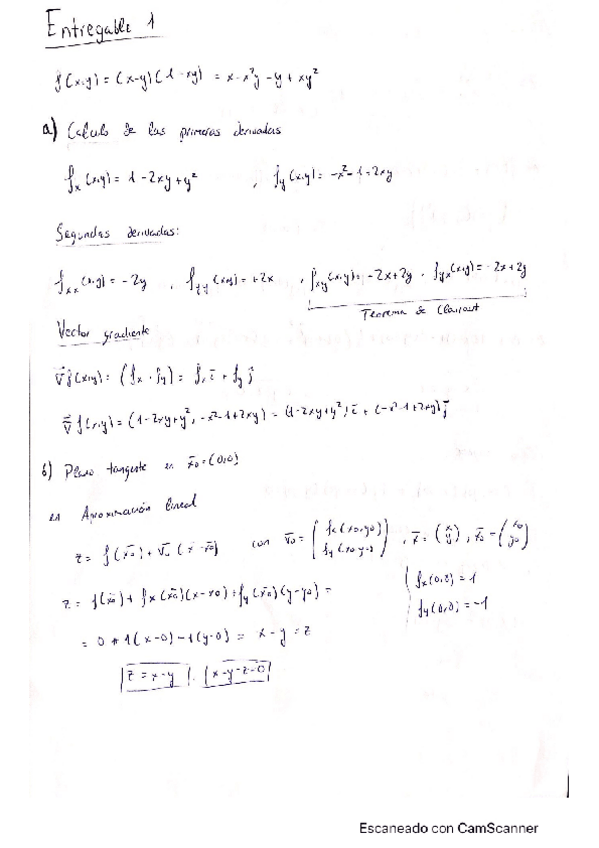 Entregable 1
f(x,y) = (x-y)(1-xy) = x-x²y-y+xy²
a) Cálculo de las primeras derivadas
fx(x,y) = 1-2xy+y² , fy(x,y) = -x²-1+2xy
Segundas derivadas:
fxx(x,y) = -2y , fyy(x,y) = +2x , fxy(x,y) = -2x+2y , fyx(x,y) = -2x+2y
Teorema de Clairaut
Vector gradiente
∇f(x,y) = (fx , fy) = fx i + fy j
∇f(x,y) = (1-2xy+y², -x²-1+2xy) = (1-2xy+y²) i + (-x²-1+2xy) j
b) Plano tangente en x̄0 = (0,0)
Aproximación lineal
z = f(x̄0) + ∇0 (x̄-x̄0) con ∇0 = (fx(x0,y0) fy(x0,y0)) , x̄ = (x y) , x̄0 = (x0 y0)
z = f(x̄0) + fx(x̄0)(x-x0) + fy(x̄0)(y-y0) =
fx(0,0) = 1
fy(0,0) = -1
= 0 + 1(x-0) - 1(y-0) = x - y = z
z = x-y , x-y-z=0
Escaneado con CamScanner